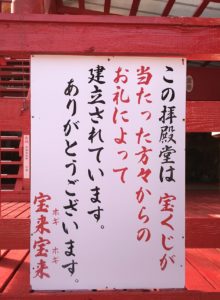 この拝殿堂は 宝くじが
当たった方々からの
お礼によって
建立されています。
ありがとうございます。
宝来宝来
ホギ ホギ